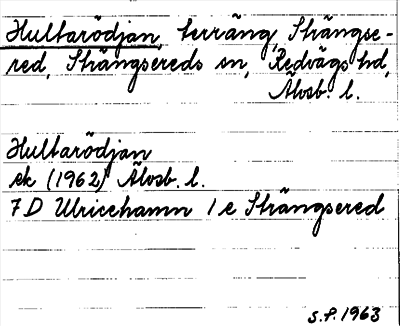 Hultarödjan, terräng, Strängse-
red, Strängsereds sn, Redvägs hd,
Älvsb. l.
Hultarödjan
ek (1962) Älvsb. l.
7 D Ulricehamn 1 e Strängsered
S.P. 1963